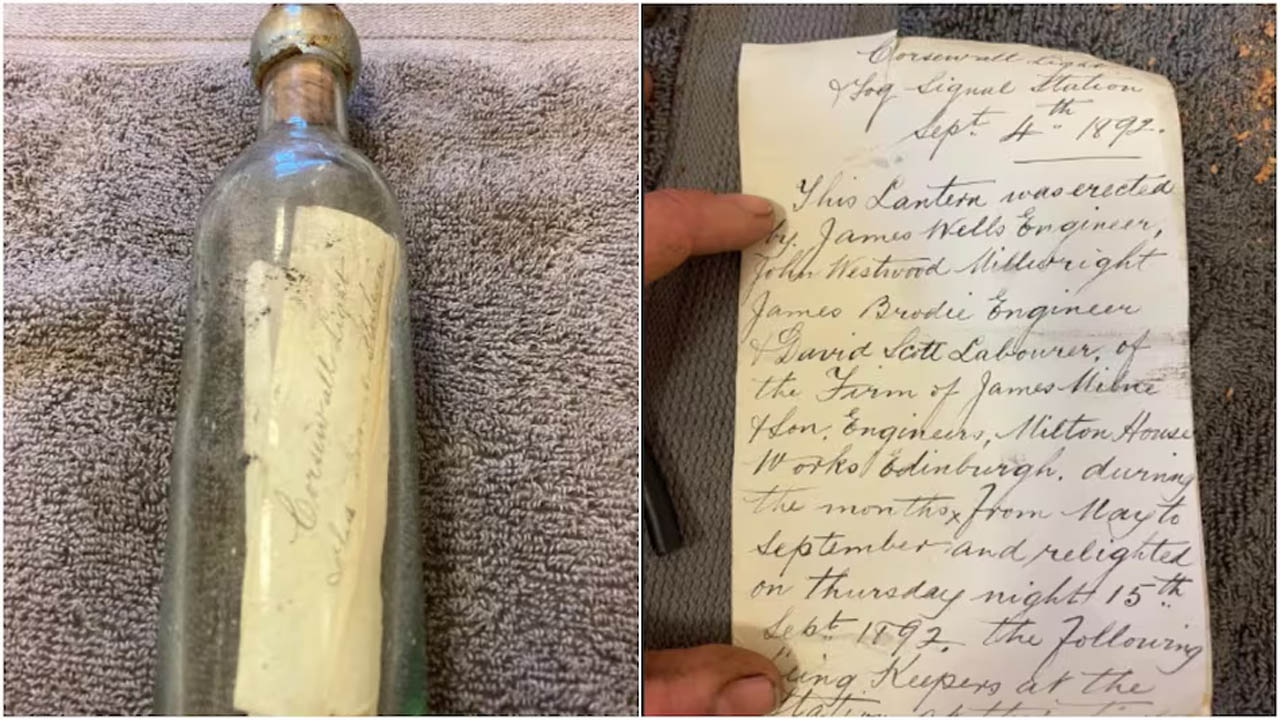 Corsewall Light
Corsewall Light
& Fog Signal Station
Sept. 4th 1892.
This Lantern was erected
by James Wells Engineer,
John Westwood Millwright
James Brodie Engineer
& David Scott Labourer, of
the Firm of James Milne
& Son, Engineers, Milton House
Works Edinburgh. during
the months from May to
September and relighted
on thursday night 15th
Sept 1892. the following
being Keepers at the
Station